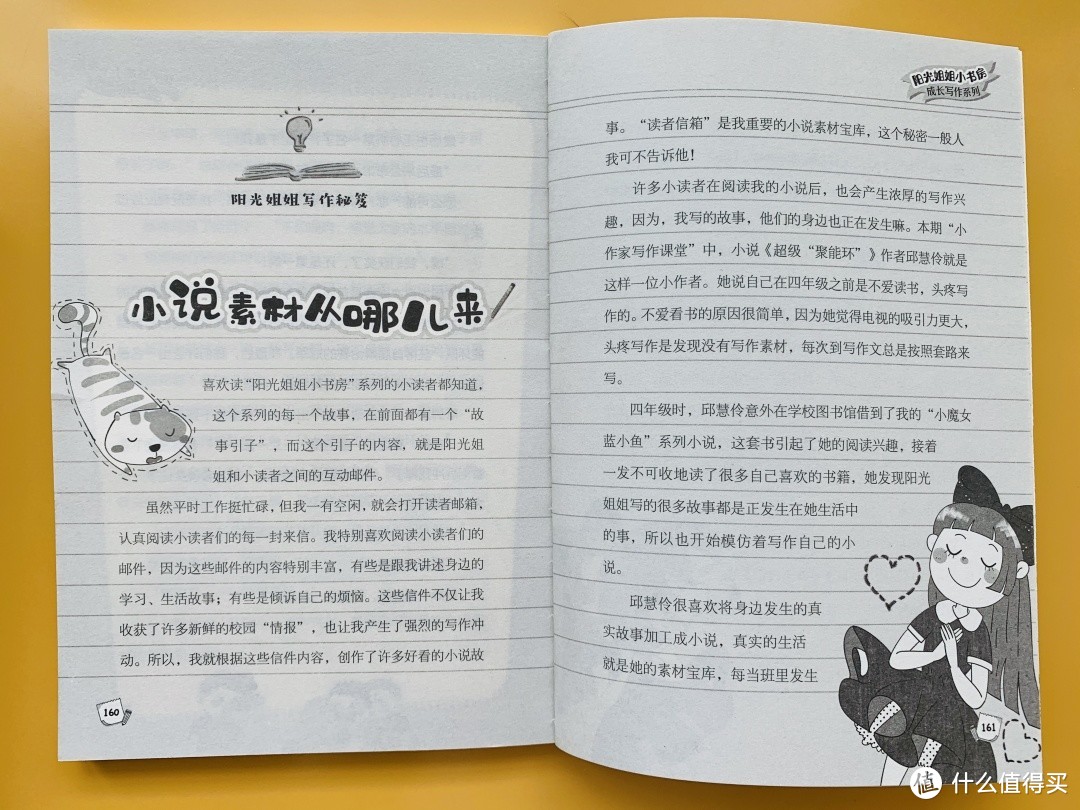 阳光姐姐写作秘笈
小说素材从哪儿来
喜欢读“阳光姐姐小书房”系列的小读者都知道，
这个系列的每一个故事，在前面都有一个“故
事引子”，而这个引子的内容，就是阳光姐
姐和小读者之间的互动邮件。
虽然平时工作挺忙碌，但我一有空闲，就会打开读者邮箱，
认真阅读小读者们的每一封来信。我特别喜欢阅读小读者们的
邮件，因为这些邮件的内容特别丰富，有些是跟我讲述身边的
学习、生活故事；有些是倾诉自己的烦恼。这些信件不仅让我
收获了许多新鲜的校园“情报”，也让我产生了强烈的写作冲
动。所以，我就根据这些信件内容，创作了许多好看的小说故
160
阳光姐姐小书房
成长写作系列
事。“读者信箱”是我重要的小说素材宝库，这个秘密一般人
我可不告诉他！
许多小读者在阅读我的小说后，也会产生浓厚的写作兴
趣，因为，我写的故事，他们的身边也正在发生嘛。本期“小
作家写作课堂”中，小说《超级“聚能环”》作者邱慧伶就是
这样一位小作者。她说自己在四年级之前是不爱读书，头疼写
作的。不爱看书的原因很简单，因为她觉得电视的吸引力更大，
头疼写作是发现没有写作素材，每次到写作文总是按照套路来
写。
四年级时，邱慧伶意外在学校图书馆借到了我的“小魔女
蓝小鱼”系列小说，这套书引起了她的阅读兴趣，接着
一发不可收地读了很多自己喜欢的书籍，她发现阳光
姐姐写的很多故事都是正发生在她生活中
的事，所以也开始模仿着写作自己的小
说。
邱慧伶很喜欢将身边发生的真
实故事加工成小说，真实的生活
就是她的素材宝库，每当班里发生
161
值 什么值得买